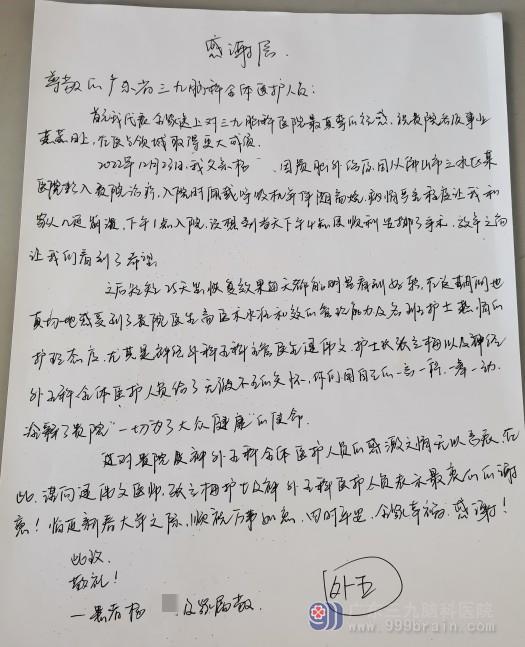 感谢信
尊敬的广东省三九脑科全体医护人员：
首先我代表全家送上对三九脑科医院最真挚的祝愿，祝贵院各项事业
蒸蒸日上，在医学领域取得更大成绩。
2022年12月23日，我父亲杨 因颅脑外伤原因从佛山市三水区某
医院转入贵院治疗，入院时佩戴呼吸机并伴随高烧，病情的严重程度让我和
家人几近崩溃，下午1点入院，没想到当天下午4点医院顺利安排了手术，效率之高
让我们看到了希望。
之后短短25天的恢复效果每天都能明显看到好转，在这期间也
真切地感受到了贵院医生高医术水准和敬业的能力及各班护士热情的
护理态度，尤其是神经外科五科主管医生 伟文、护士长张 梅以及神经
外五科全体医护人员给了无微不至的关怀，你们用自己的一言一行、一举一动
诠释了贵院“一切为了大众健康”的使命。
我对贵院及神外五科全体医护人员的感激之情无以言表，在
此，谨向 伟文医师、张 梅护士及神外五科医护人员表示最衷心的谢
意！临近新春大年之际，顺祝万事如意，四时平安，全家幸福，感谢！
此致
敬礼！
一患者杨 及家属敬
外五
广东三九脑科医院
www.999brain.com